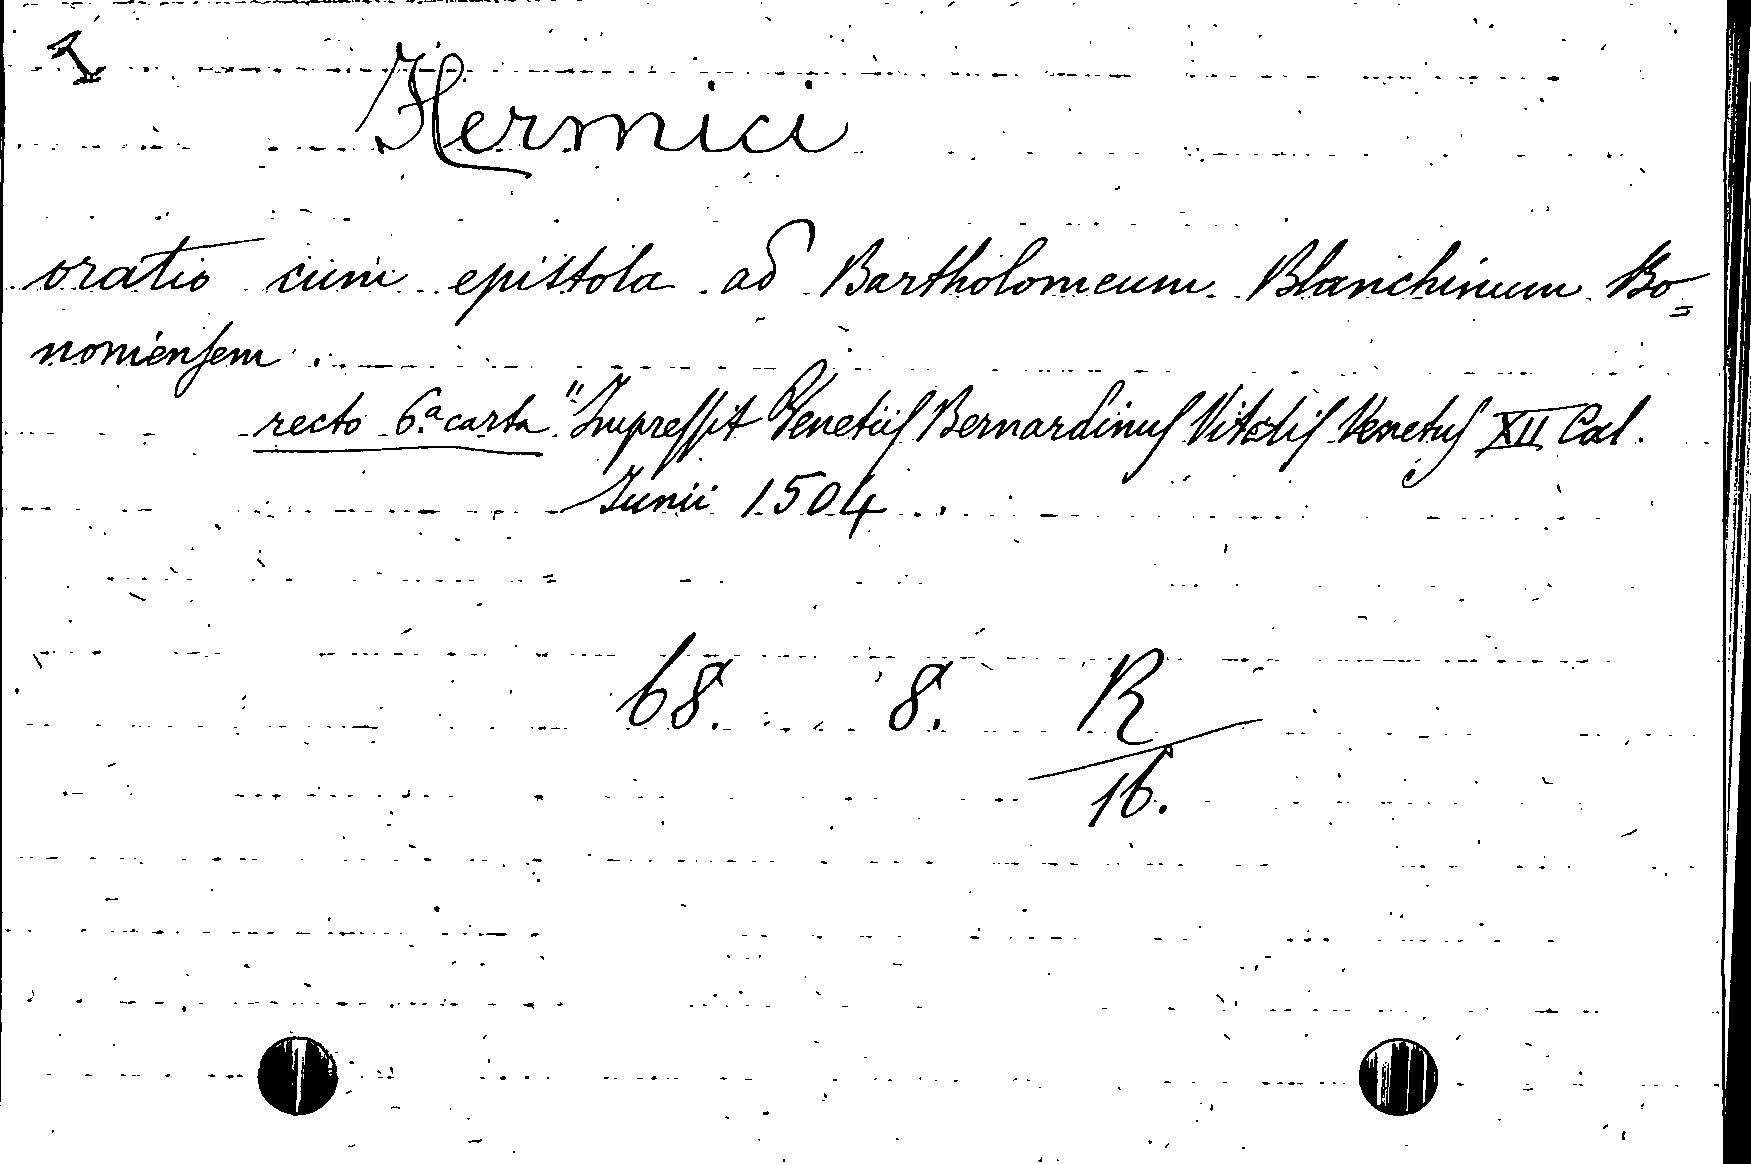 1
Hermici
oratio cum epistola ad Bartholomeum Blanchinum Bo=
noniensem.
recto 6ª carta "Impressit Venetiis Bernardinus Vitalis Venetus XII Cal.
Junii 1504.
68. 8. R
16.